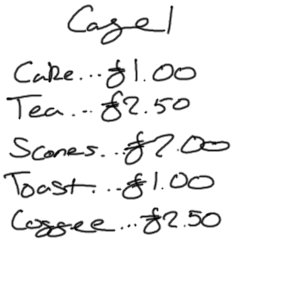 Cafe 1
Cake...£1.00
Tea...£2.50
Scones...£2.00
Toast...£1.00
Coffee...£2.50